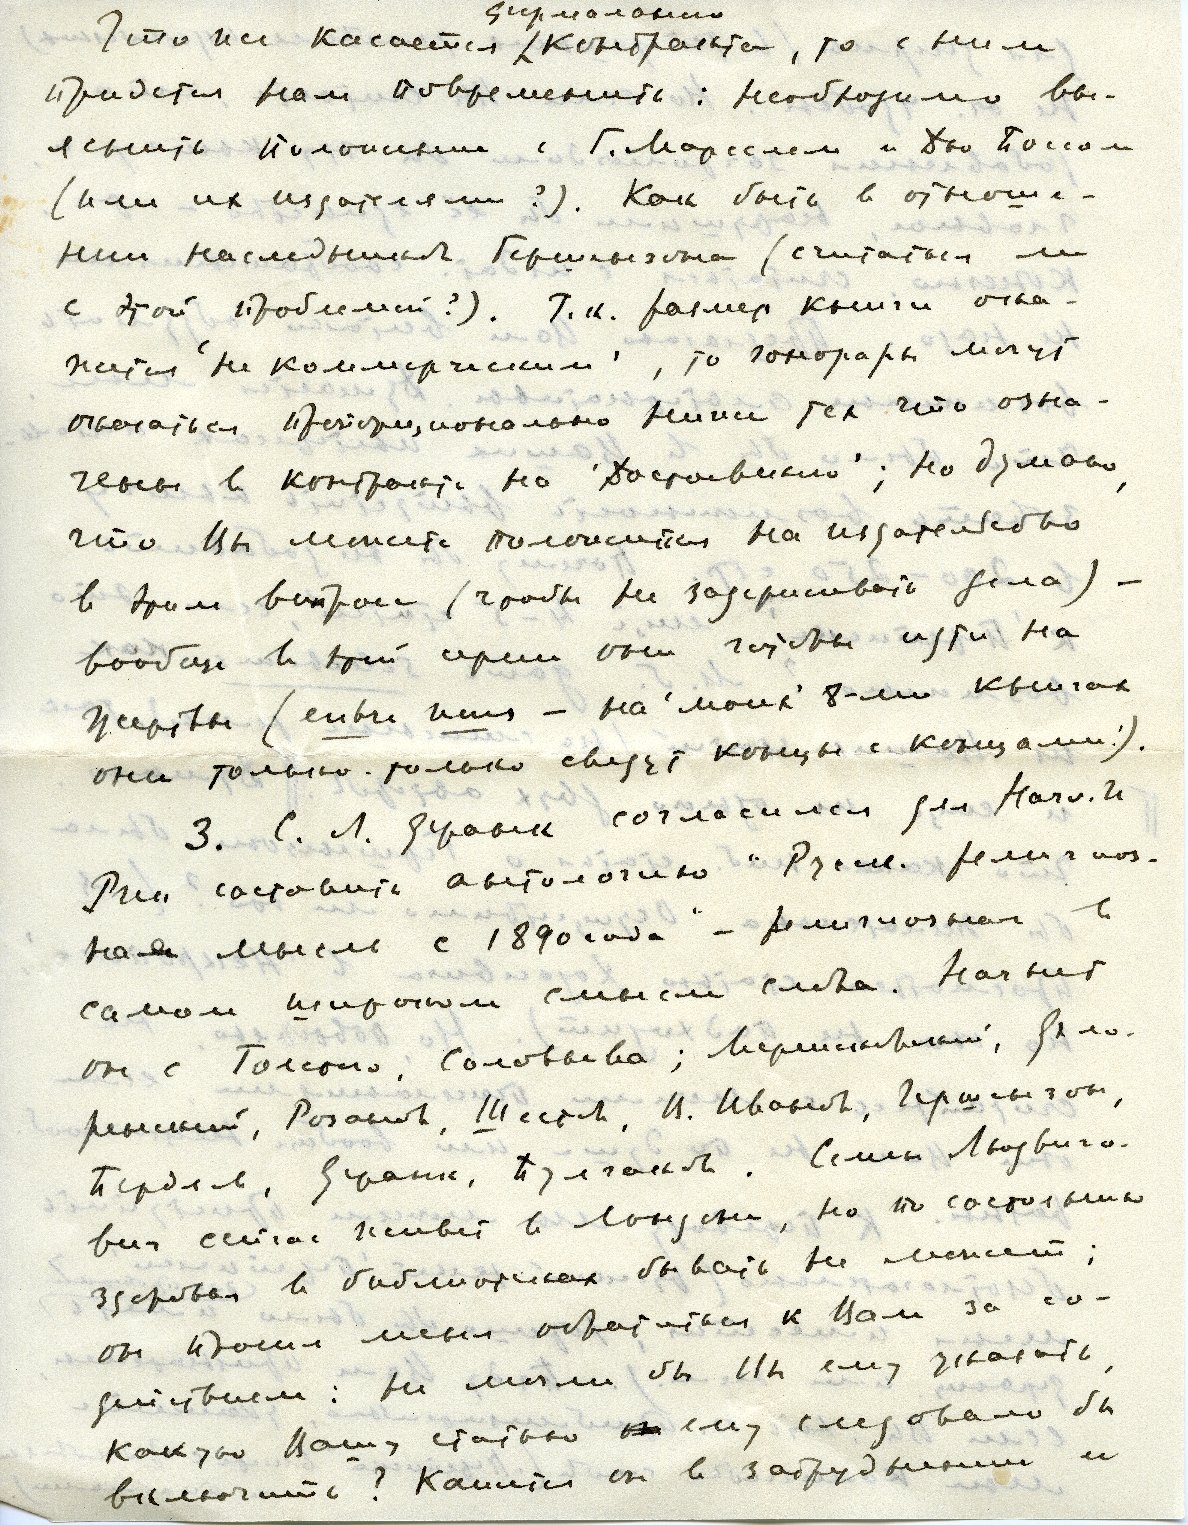 формального
Что же касается контракта, то с ним
придется нам повременить: необходимо вы-
яснить положение с Г. Марселем и Дю Боссом
(или их издателями?). Как быть в отноше-
нии наследников Гершензона (считаться ли
с этой проблемой?). Т.к. размер книги ока-
жется 'не коммерческим', то гонорары могут
оказаться пропорционально ниже тех что озна-
чены в контракте на 'Достоевского'; но думаю,
что Вы можете положиться на издательство
в этом вопросе (чтобы не задерживать дела) –
вообще в этой серии они готовы идти на
жертвы (entre nous – на 'моих' 8-ми книгах
они только-только сведут концы с концами!).
3. С. Л. Франк согласился для Harv.'а
составить антологию "Русск. религиоз-
ная мысль с 1890 года" – религиозная в
самом широком смысле слова. Начнет
он с Толстого, Соловьева; Мережковский, Фло-
ренский, Розанов, Шестов, В. Иванов, Гершензон,
Бердяев, Франк, Булгаков. Семен Людвиго-
вич сейчас живет в Лондоне, но по состоянию
здоровья в библиотеках бывать не может;
он просил меня обратиться к Вам за со-
действием: не могли бы Вы ему указать,
какую Вашу статью ему следовало бы
включить? Кажется он в затруднении и